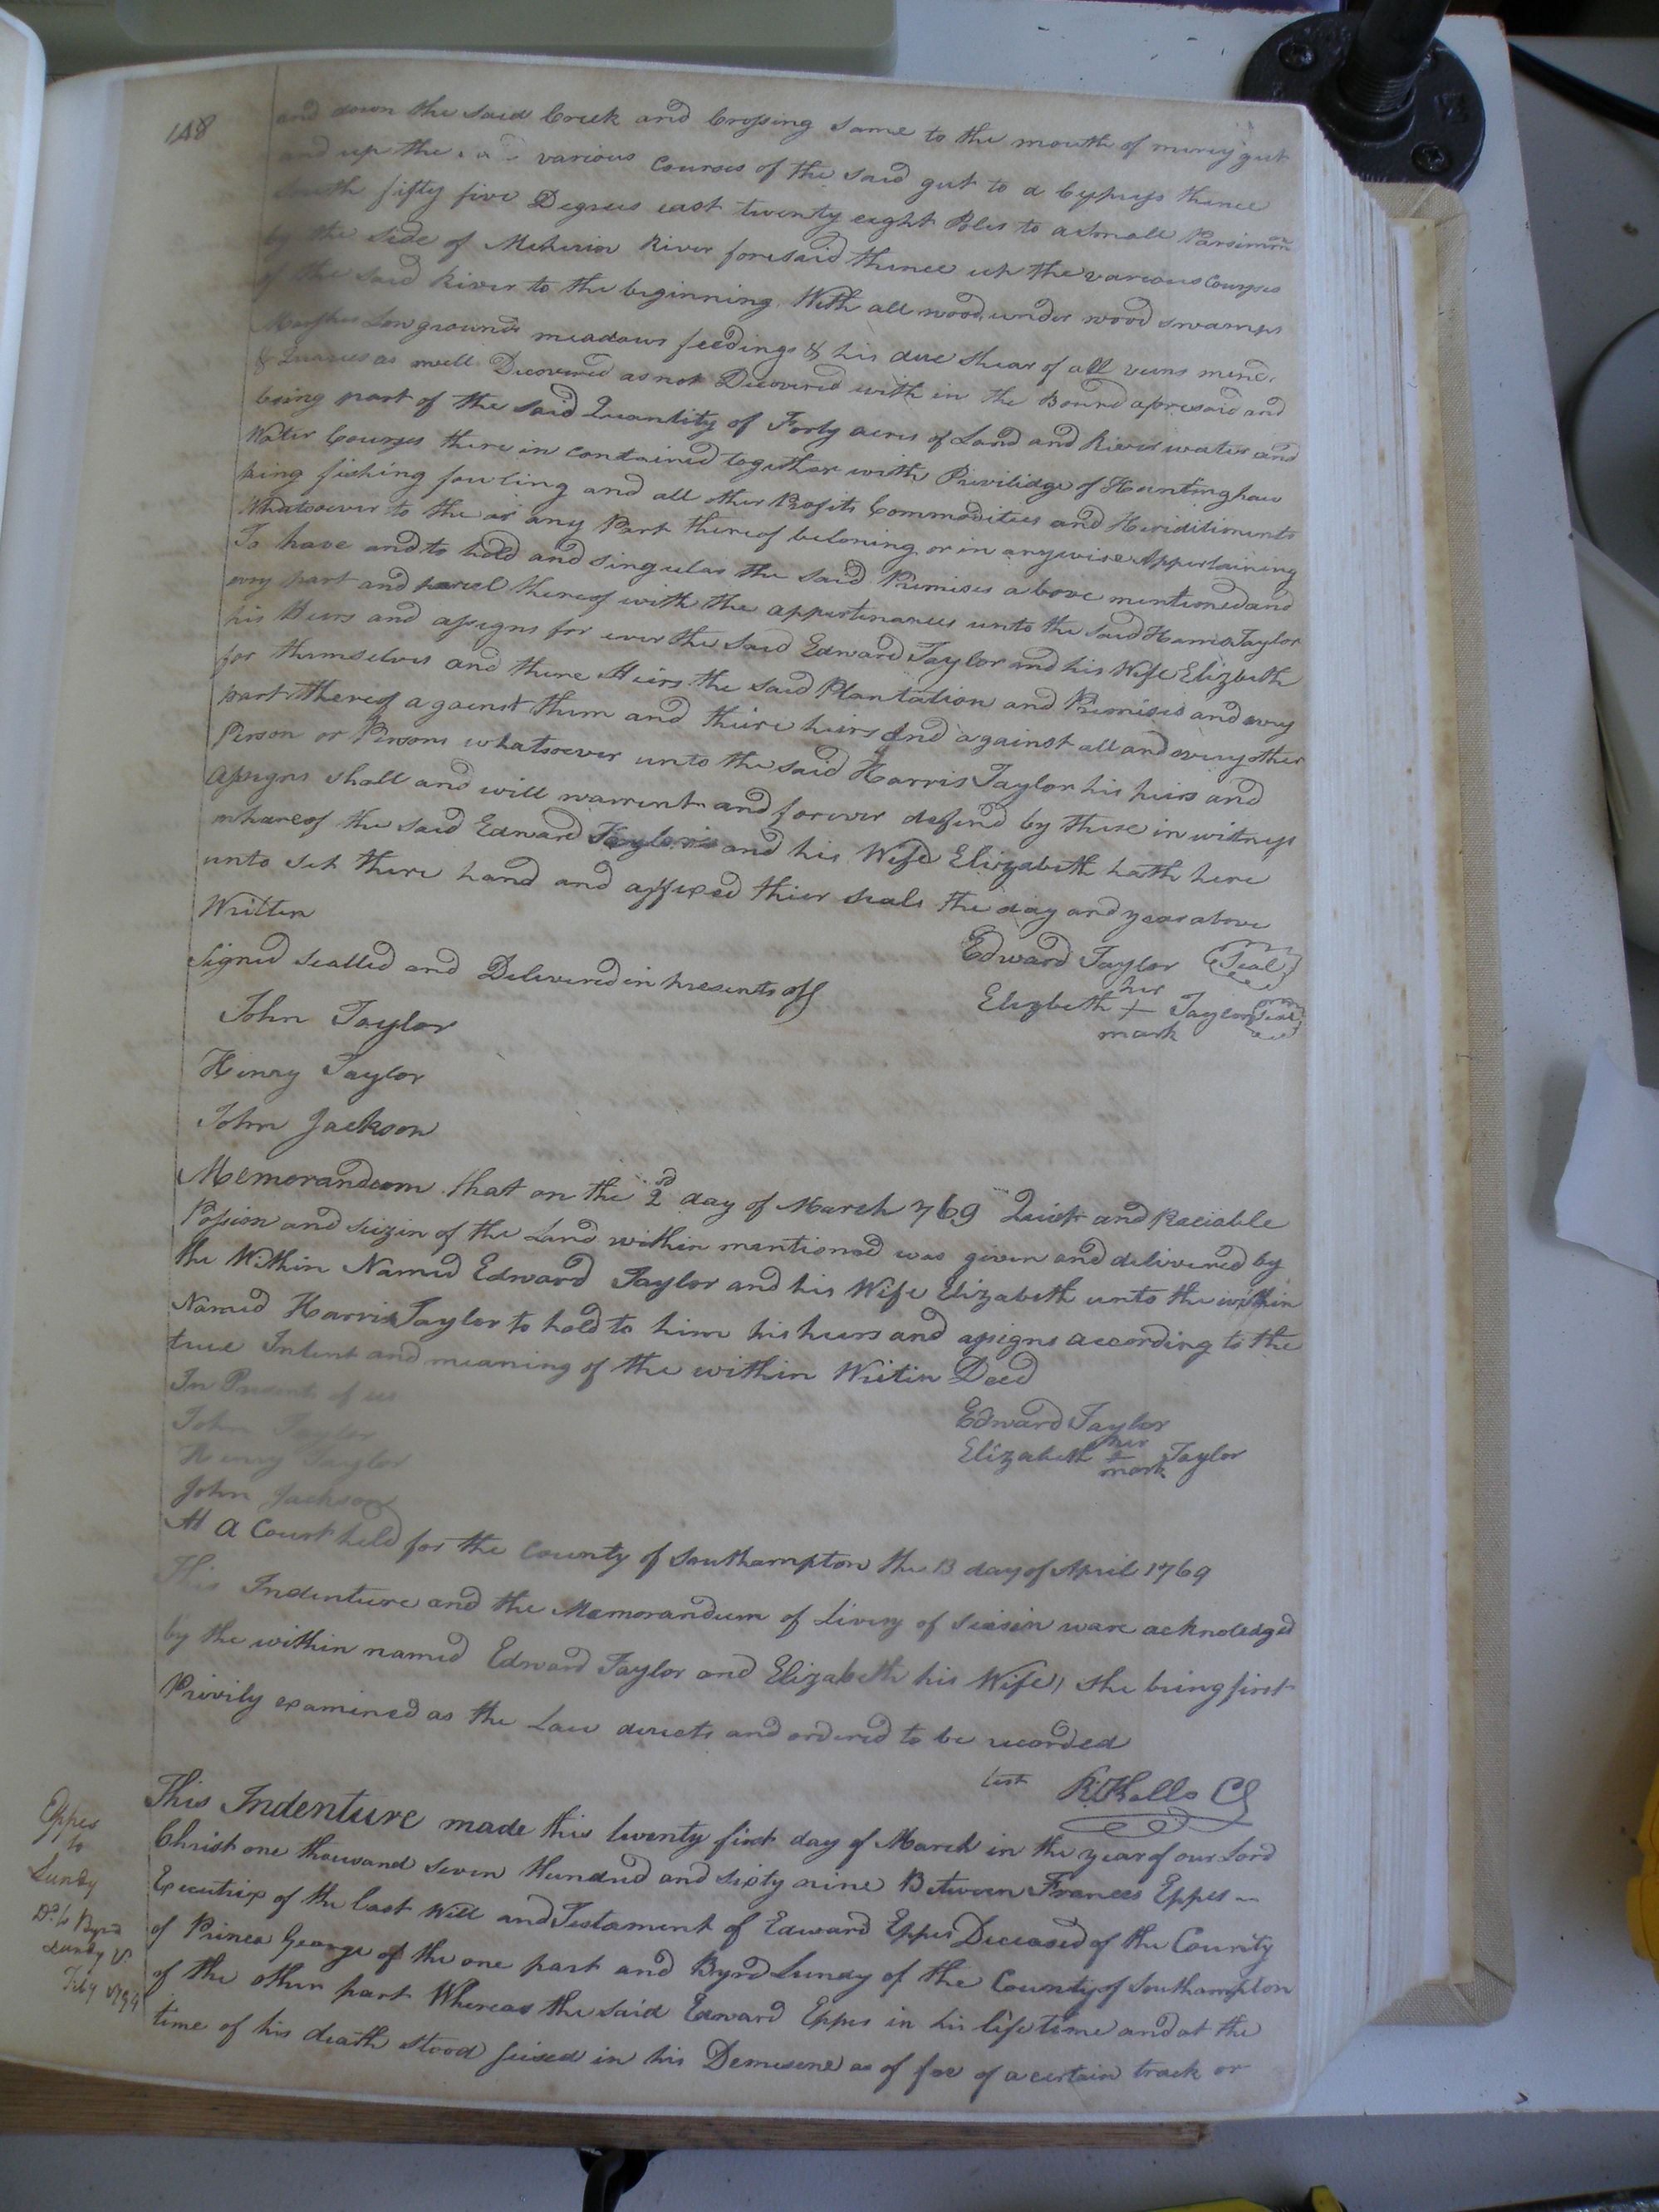 148
and down the said Creek and Crossing same to the mouth of mircy gut
and up the various Courses of the said gut to a Cypruss thence
South fifty five Degrees east twenty eight Poles to a small Parsimon
by the side of Meherin River foresaid thence up the various Courses
of the said River to the beginning. With all wood under wood swamps
Marshes Low grounds meadows feedings & his due shear of all veins mine
& Quaries as well Discovered as not Discovered with in the Bound aforesaid and
being part of the said Quantity of Forty acres of Land and River waters and
Water Courses there in contained together with Privilidge of Hunting haw
king fishing fowling and all other Profits Commodities and Hiriditiments
Whatsoever to the or any Part thereof beloning or in anywise Appertaining
To have and to hold and singular the said Primises above mentioned and
evry part and parcel thereof with the appertinances unto the said Harris Taylor
his Heirs and assigns for ever the said Edward Taylor and his Wife Elizbeth
for themselves and there Heirs the said Plantation and Primises and evry
part thereof against them and theire heirs And against all and every other
Person or Persons whatsoever unto the said Harris Taylor his heirs and
Assigns shall and will warrent and forever defend by these in witness
whareof the said Edward Taylor and his Wife Elizabeth hath here
unto set there hand and affixed thier seals the day and year above
Written
Edward Taylor Seal
Signed sealled and Delivered in presents off
her
Elizbeth + Taylor Seal
mark
John Taylor
Henry Taylor
John Jackson
Memorandum that on the 2d day of March 769 Quit and Paciable
Possion and seizin of the Land within mentioned was given and delivered by
the Within Named Edward Taylor and his Wife Elizabeth unto the within
Named Harris Taylor to hold to him his heirs and assigns according to the
true Intent and meaning of the within Writin Deed
In Presents of us
Edward Taylor
John Taylor
her
Elizabeth + Taylor
mark
Henry Taylor
John Jackson
At a Court held for the County of Southampton the 13 day of April 1769
This Indenture and the Memorandum of Livery of Seisin ware acknoledged
by the within named Edward Taylor and Elizabeth his Wife, she being first
Privily examined as the Law directs and ordered to be recorded
test R: Kello CS
This Indenture made this twenty first day of March in the year of our Lord
Christ one thousand seven Hundred and sixty nine Between Frances Eppes
Executrix of the last Will and Testament of Edward Eppes Deceased of the County
of Prince George of the one part and Byrd Lundy of the County of Southampton
of the other part Whereas the said Edward Eppes in his life time and at the
time of his death stood seised in his Demesene as of fee of a certain track or
Eppes
to
Lundy
Dd to Byrd
Lundy